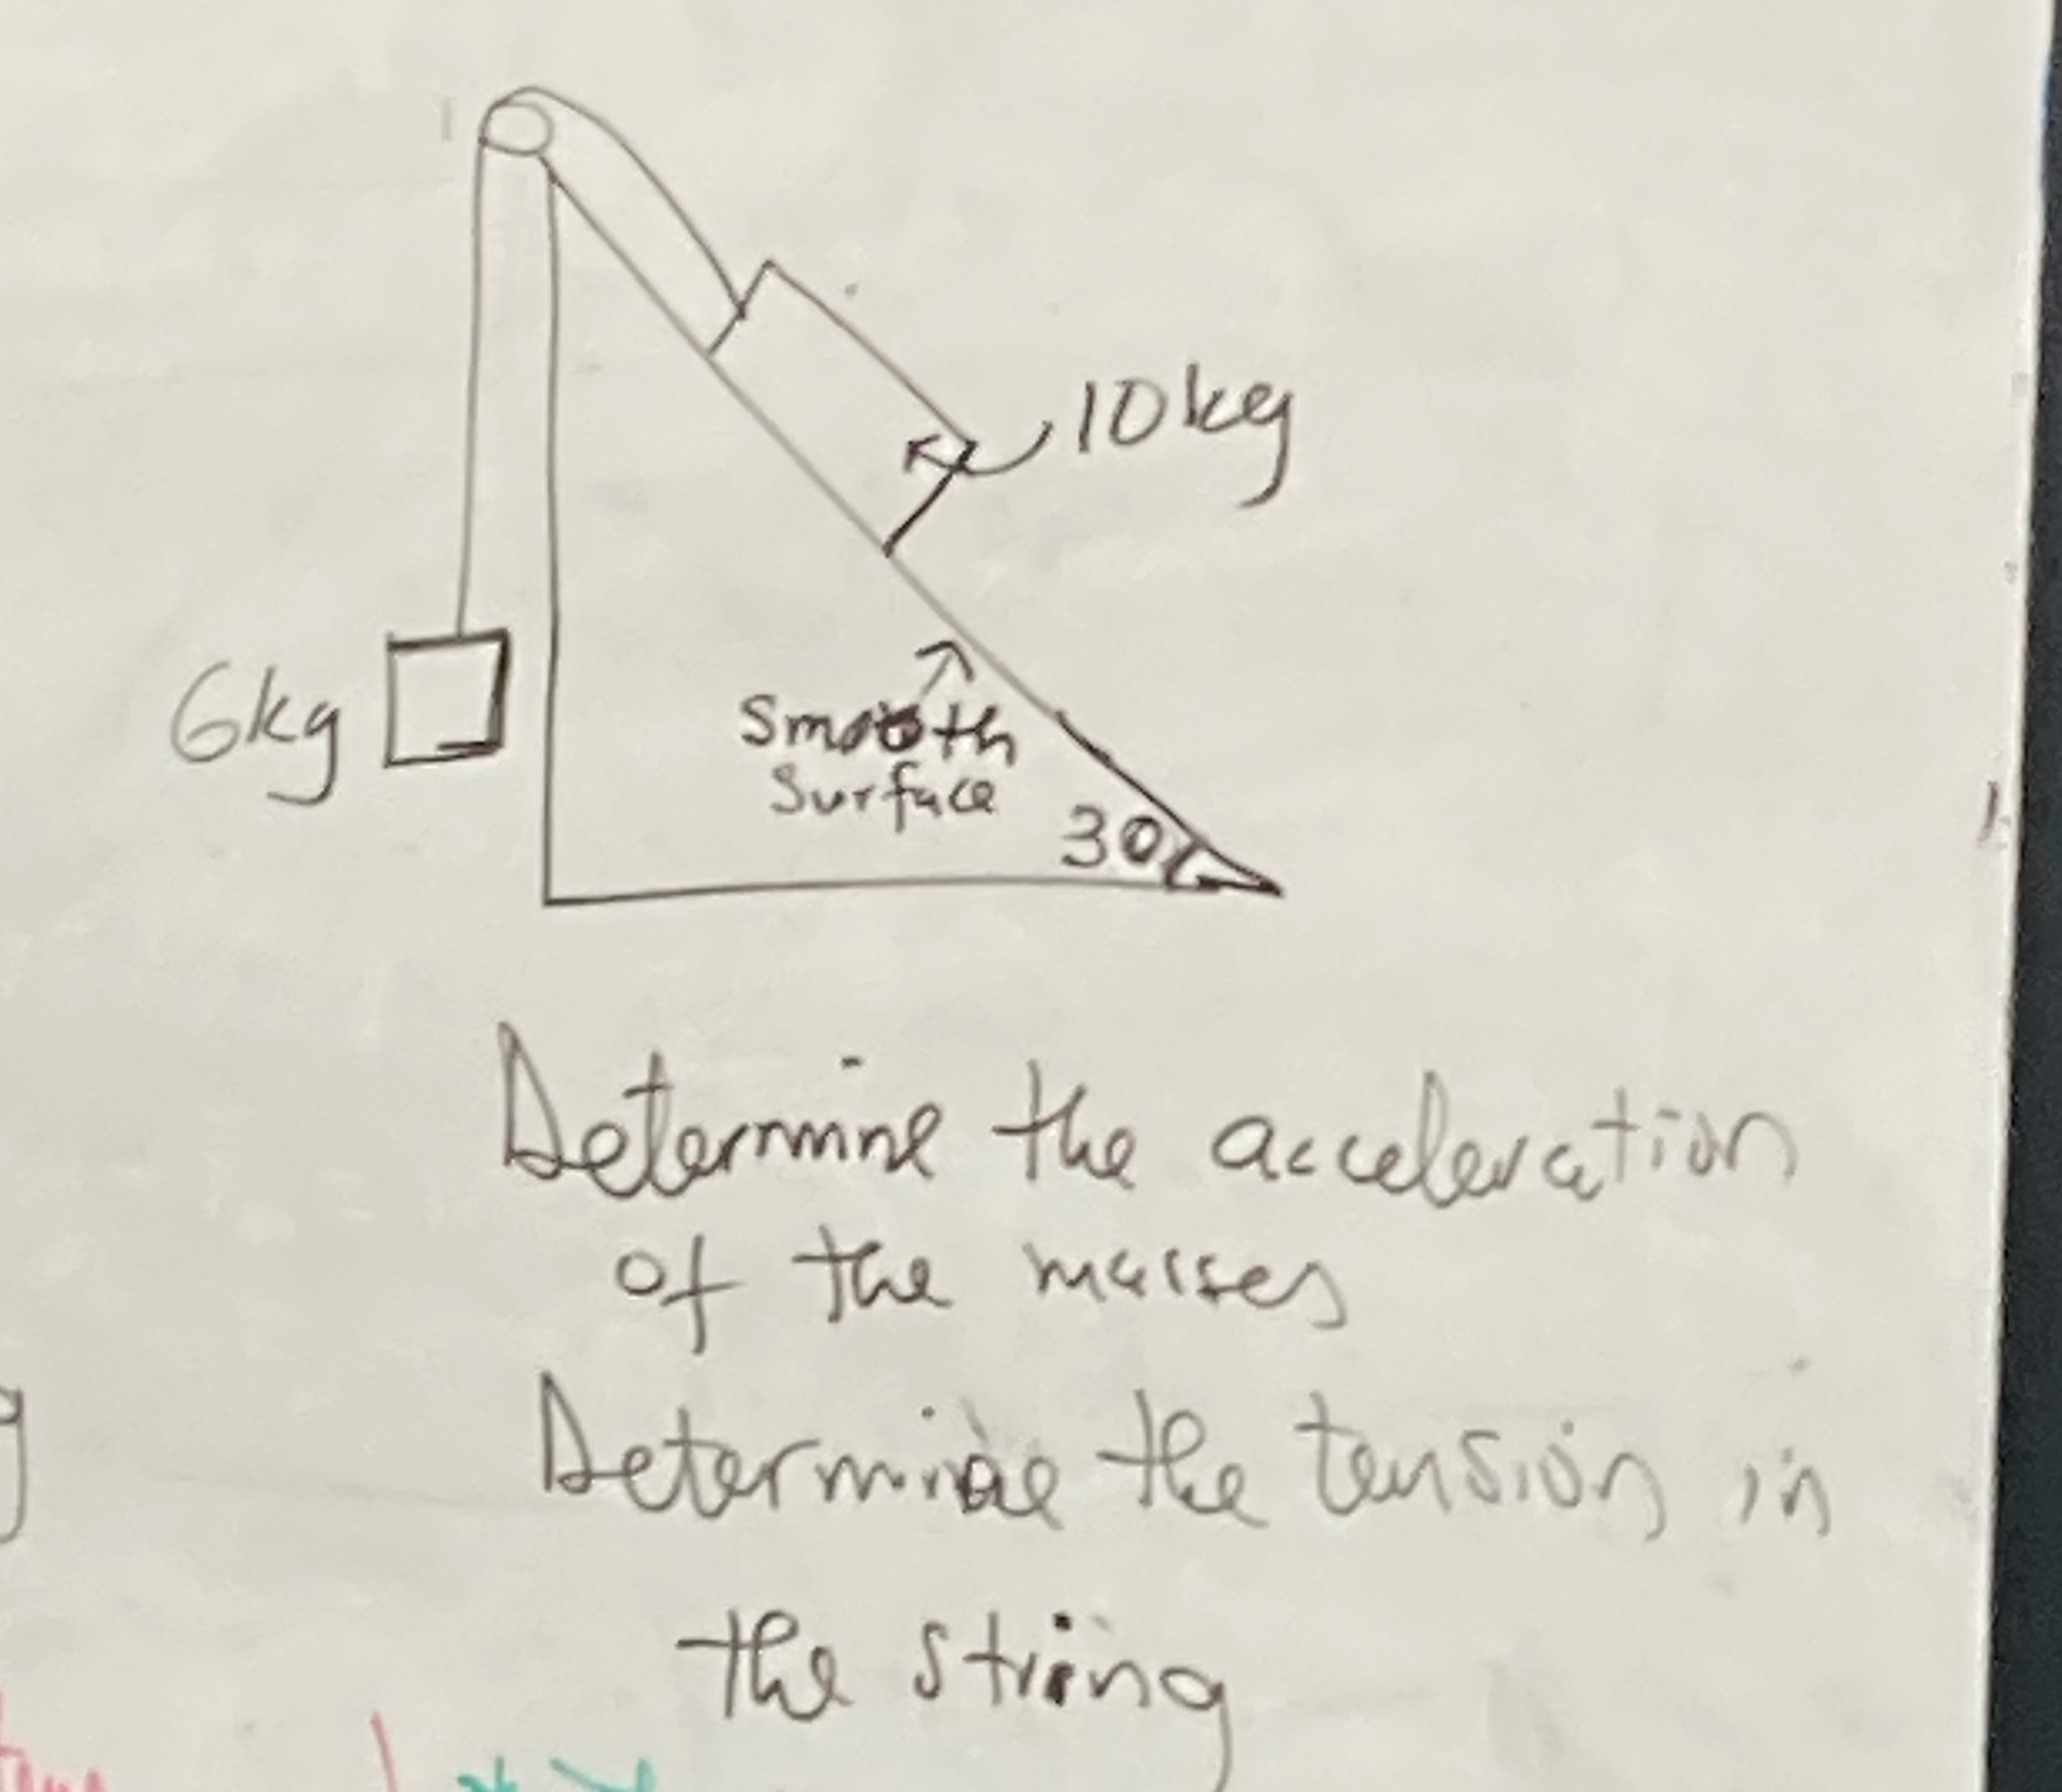 10kg
6kg
Smooth
Surface
30
Determine the acceleration
of the masses
Determine the tension in
the string